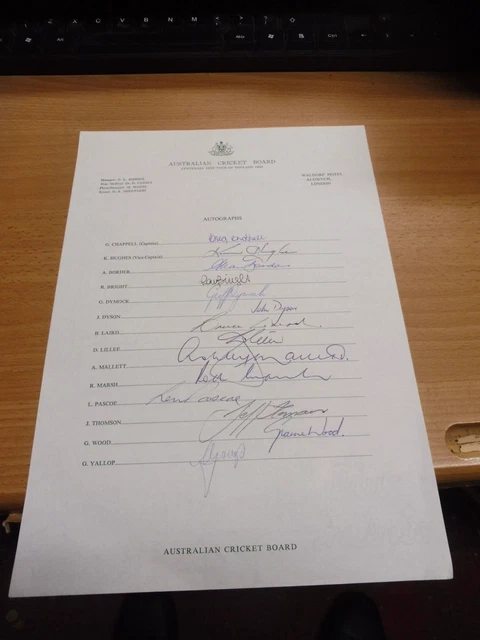 AUSTRALIAN CRICKET BOARD
WALDORF HOTEL
ALDWYCH,
LONDON
AUTOGRAPHS
G. CHAPPELL (Captain)
Greg Chappell
K. HUGHES (Vice-Captain)
Kim Hughes
A. BORDER
Allan Border
R. BRIGHT
Ray Bright
G. DYMOCK
G Dymock
J. DYSON
John Dyson
B. LAIRD
Bruce Laird
D. LILLEE
D Lillee
A. MALLETT
Ashley Mallett
R. MARSH
Rod Marsh
L. PASCOE
Len Pascoe
J. THOMSON
Jeff Thomson
G. WOOD
Graeme Wood.
G. YALLOP
AUSTRALIAN CRICKET BOARD